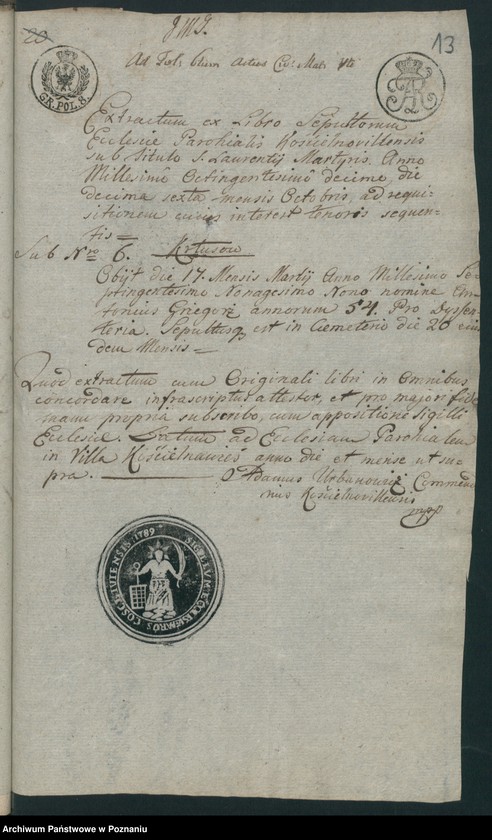 20
J M J.
13
GR. POL. 8.
FR
Extractum ex Libro Sepultorum
Ecclesiæ Parochialis Kościelnovillensis
sub titulo S. Laurentij Martyris. Anno
Millesimo Octingentesimo decimo die
decima sexta mensis Octobris, ad requi-
sitionem cujus interest tenoris sequen-
tis
Sub Nro 6.
Obijt die 17. Mensis Martij Anno Millesimo Se-
ptingentesimo Nonagesimo Nono nomine An-
tonius annorum 54. Pro Dyssen-
teria. Sepultus est in Cœmeterio die 20 eius
dem Mensis
Quod extractum cum Originali libri in omnibus
concordare infrascriptus attestor, et pro majori fide
manu propria subscribo, cum appositione Sigilli
Ecclesiæ. Datum ad Ecclesiam Parochialem
in Villa anno die et mense ut su-
pra. Adamus Urbanowicz Commen
Kościelnovillensis
mpp
1789
Archiwum Państwowe w Poznaniu